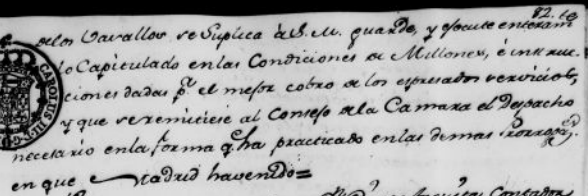 82. te
de los Vasallos se Suplica à S.M. guarde, y ejecute enteram
lo Capitulado en las Condiciones de Millones, è instruc-
ciones dadas pa. el mejor cobro de los expresados servicios,
y que se remitiese al Consejo de la Camara el Despacho
necesario en la forma q. ha practicado en las demas Prorrogs.
en que Madrid haviendo=
Contador
CAROLUS III